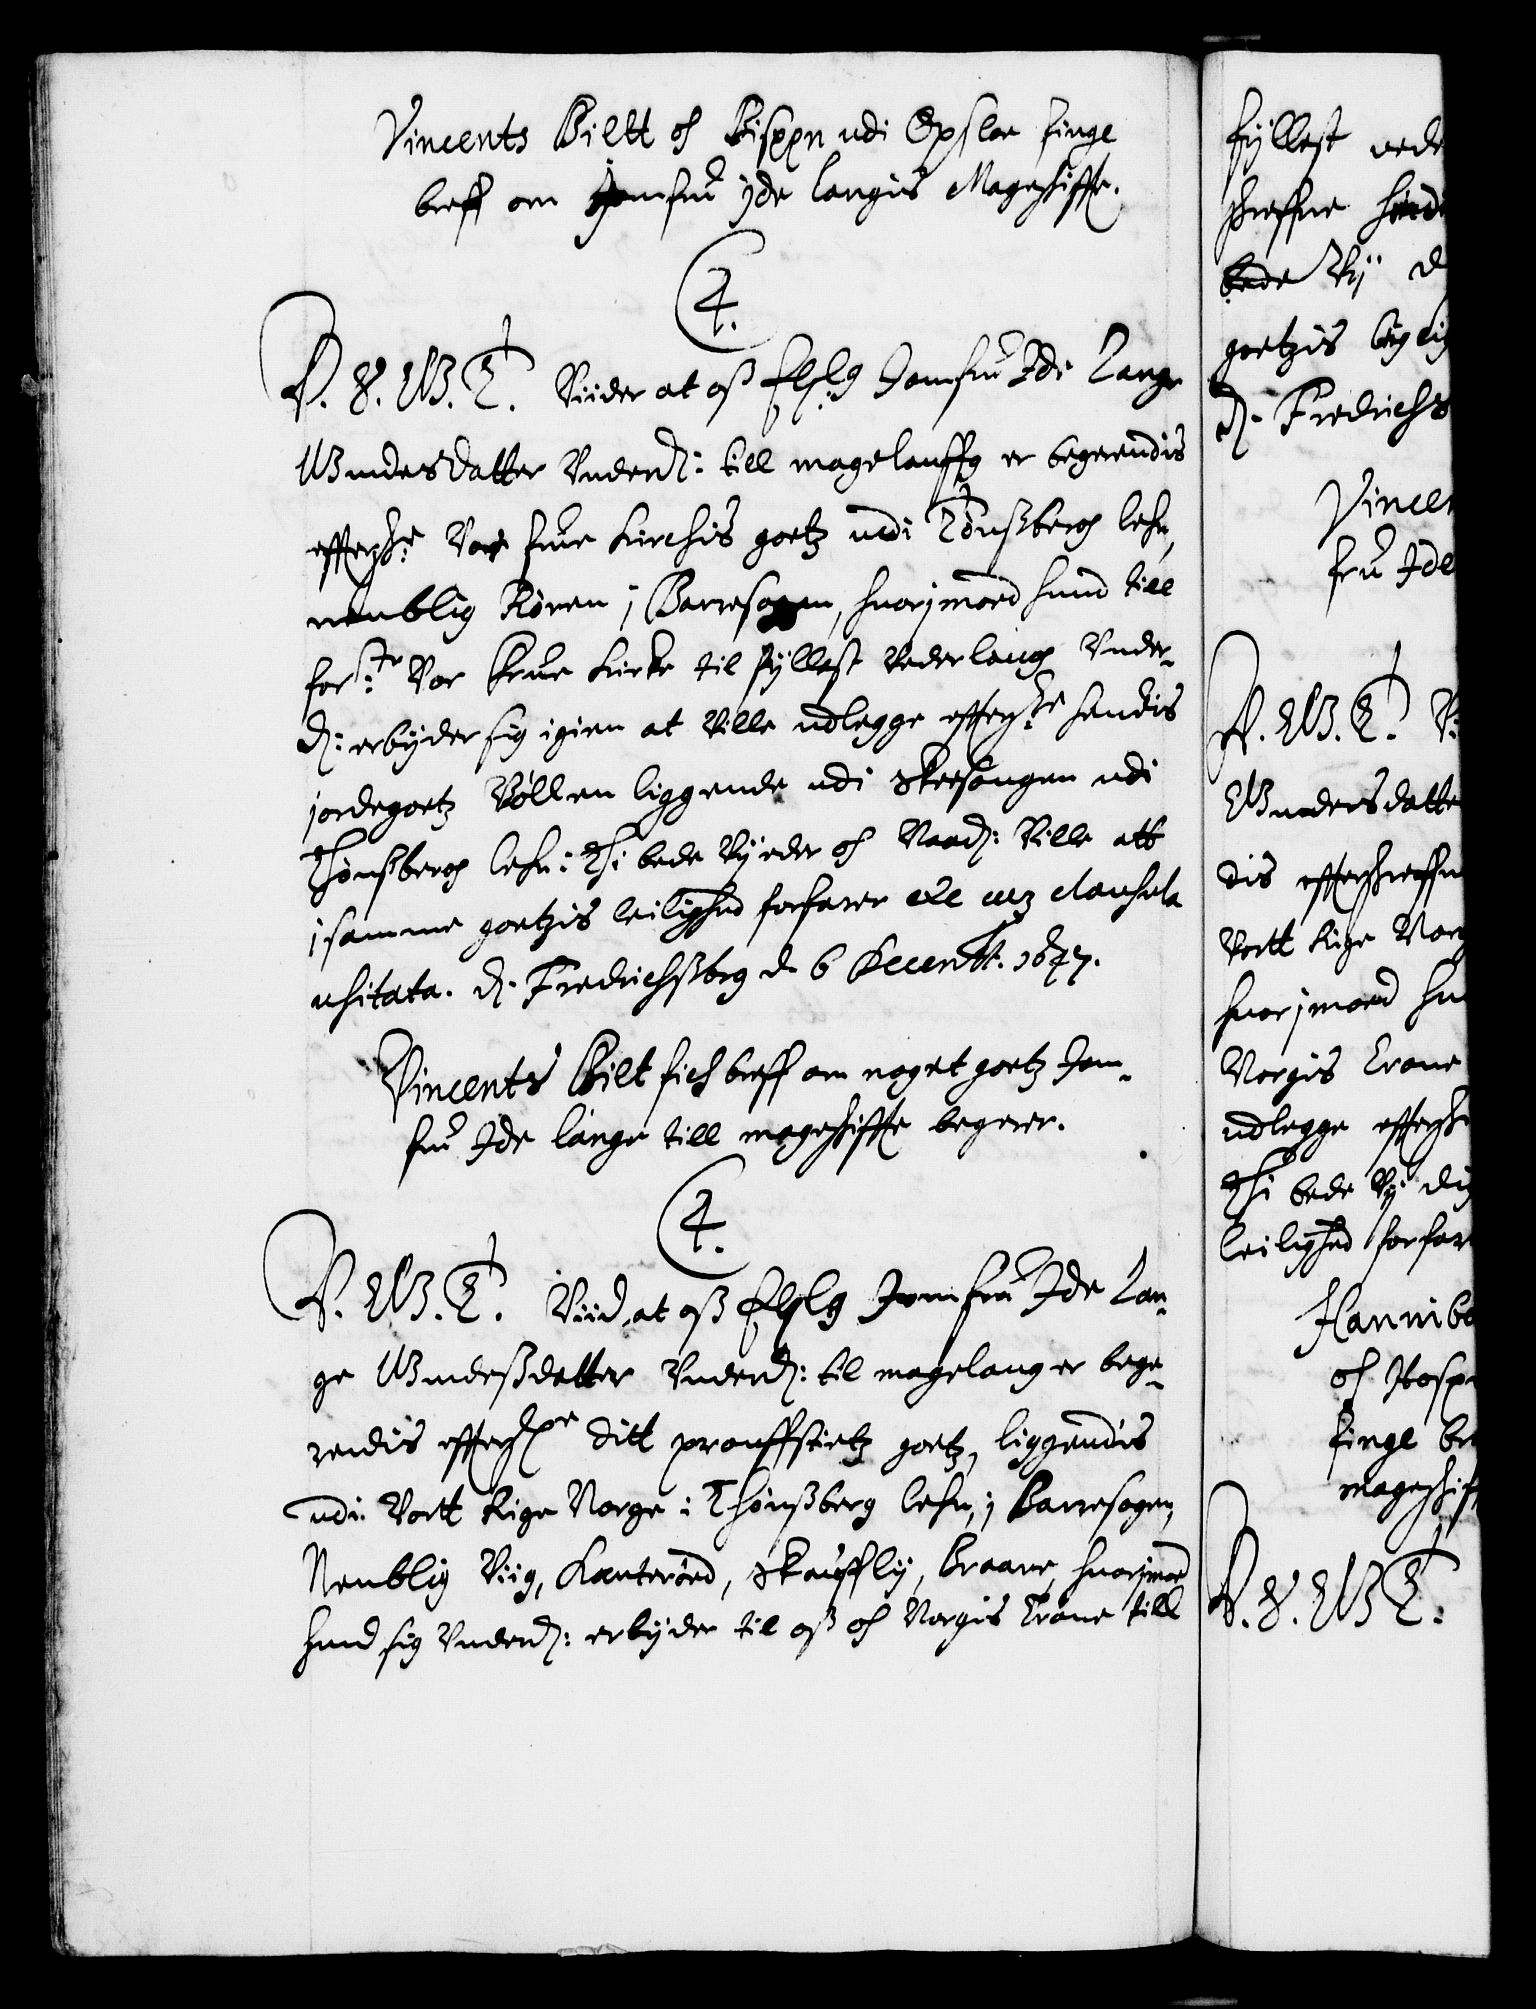 Vincents Biltt oc Bispen udi Opsloe finge
breff om Jomfru Ide Langis Mageskiffte.
C 4.
V. S. W. T. Viider at oss Elsk: g Jomfru Ide Lange
Gundersdatter Underd: till magelauffg er begerendis
effterskr: Vor frue Kirchis goetz udi Tønssberg lehn,
nemblig Røren i Barresogen, huorjmoed hund till
for:ne Vor Frue Kirke til fyllest Vederlaug Under¬
d: erbyder sig igien at Ville udlegge effterskr:ne hendis
jordegoetz Vøllen liggende udi Skeesougen udi
Thønssberg lehn: Thi bede Vy eder oc Naad: Ville att
i samme goetzis leilighed forfarer etc cum clausula
usitata. D. Fredrichssbrg d. 6 Decembr. 1647.
Vincents Bilt fich breff om noget goetz Jom¬
fru Ide Lange till mageskiffte begerer.
C 4.
V. W. T. Viid, at oss Elsklg Jomfru Ide Lan¬
ge Gundessdatter Underd: til magelaug er bege¬
rendis effterskne ditt prouffstietz goetz, liggendis
udi Vortt Rige Norge i Thønssberg lehn, i Barresogen,
Nemblig Viig, Kanterød, Skouffly, Braane, huorjmod
hund sig Underd: erbyder til oss oc Norgis Crone till
fyllest vede
skreffne hendi
bede Vy d
goetzis leylig
D. Fredrichs
Vincen
fru Ide
V. W. T. Vi
Gundersdatte
dis effterskreffn
Vortt Rige Norg
huorjmoed hu
Norgis Crone
udlegge effterskr
Thi bede Vy dig
leilighed forfar
Hanniba
oc Bisp
finge br
mageskiff
V. S. W T.